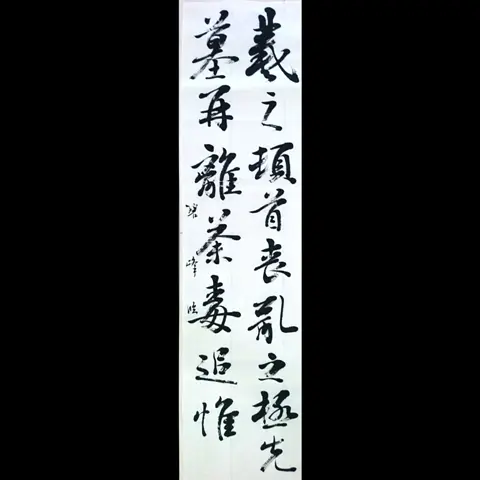 羲之頓首喪亂之極先
墓再離荼毒追惟
峰臨